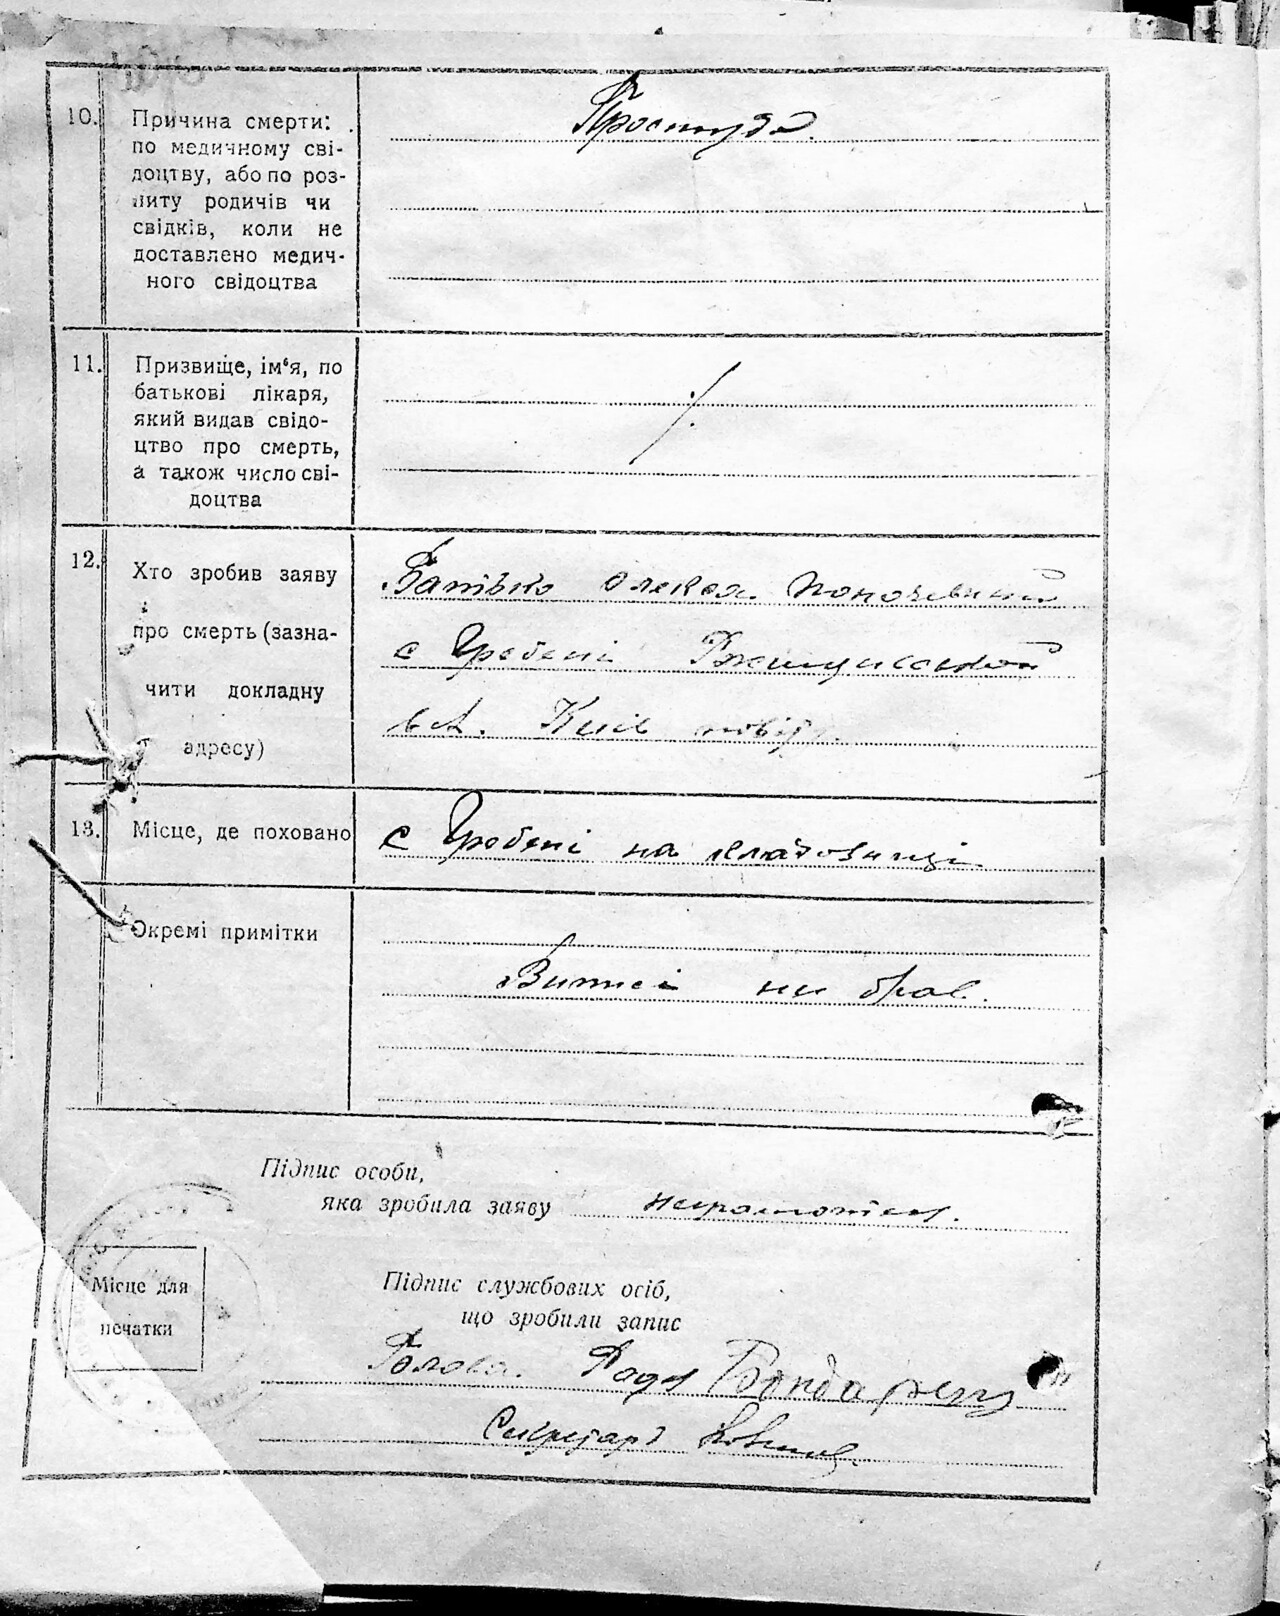 10. Причина смерти:
по медичному сві-
доцтву, або по роз-
питу родичів чи
свідків, коли не
доставлено медич-
ного свідоцтва
Простуда.
11. Призвище, ім‘я, по
батькові лікаря,
який видав свідо-
цтво про смерть,
а також число сві-
доцтва
⁒
12. Хто зробив заяву
про смерть (зазна-
чити докладну
адресу)
Батько Олекса
с Гребені Ржищівської
вл. Київ повіту.
13. Місце, де поховано
с Гребені на кладовищі
Окремі примітки
Виписі ни брав.
Підпис особи,
яка зробила заяву неграмотен.
Місце для
печатки
Підпис службових осіб,
що зробили запис
Голова Ради Бондаренко
Секретарь